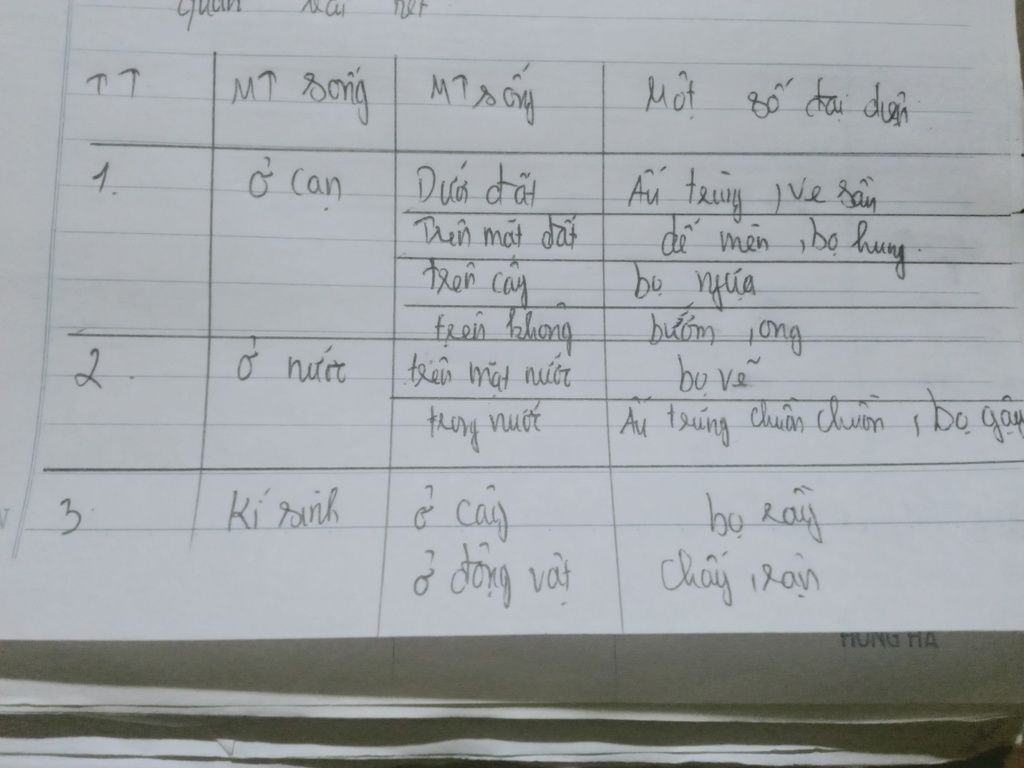 TT MT sống MT sống Một số đại diện
1. ở cạn Dưới đất Ấu trùng, ve sầu
Trên mặt đất dế mèn, bọ hung.
trên cây bọ ngựa
trên không bướm, ong
2. ở nước trên mặt nước bọ vẽ
trong nước Ấu trùng chuồn chuồn, bọ gậy
3 Kí sinh ở cây bọ rầy
ở động vật Chấy, rận
HỒNG HÀ